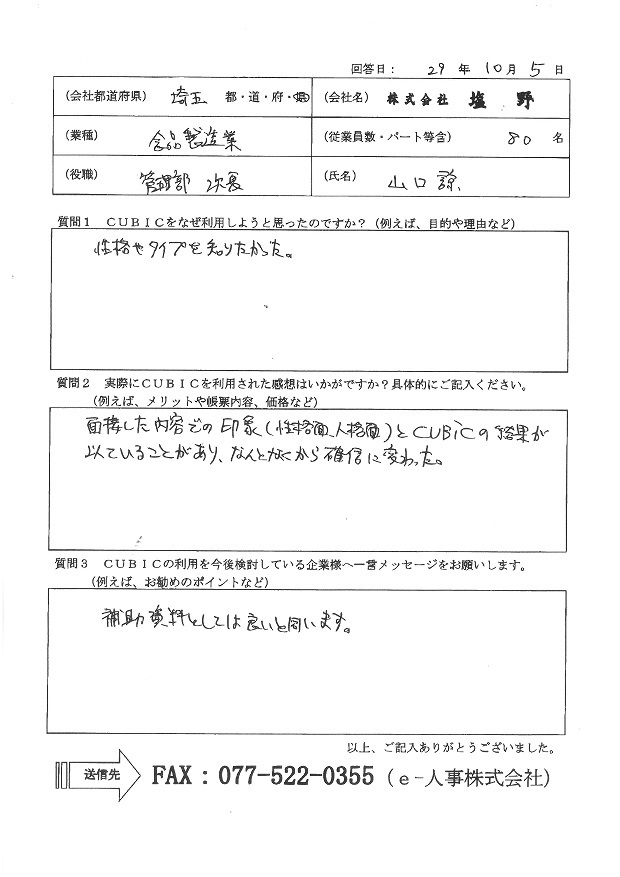 回答日： 29 年 10 月 5 日
（会社都道府県） 埼玉 都・道・府・県 （会社名） 株式会社 塩野
（業種） 食品製造業 （従業員数・パート等含） 80 名
（役職） 管理部 次長 （氏名） 山口 諒
質問１ ＣＵＢＩＣをなぜ利用しようと思ったのですか？（例えば、目的や理由など）
性格やタイプを知りたかった。
質問２ 実際にＣＵＢＩＣを利用された感想はいかがですか？具体的にご記入ください。
（例えば、メリットや帳票内容、価格など）
面接した内容での印象（性格面、人格面）とCUBICの結果が
似ていることがあり、なんとなくから確信に変わった。
質問３ ＣＵＢＩＣの利用を今後検討している企業様へ一言メッセージをお願いします。
（例えば、お勧めのポイントなど）
補助資料としては良いと思います。
以上、ご記入ありがとうございました。
送信先 FAX：077-522-0355（e-人事株式会社）